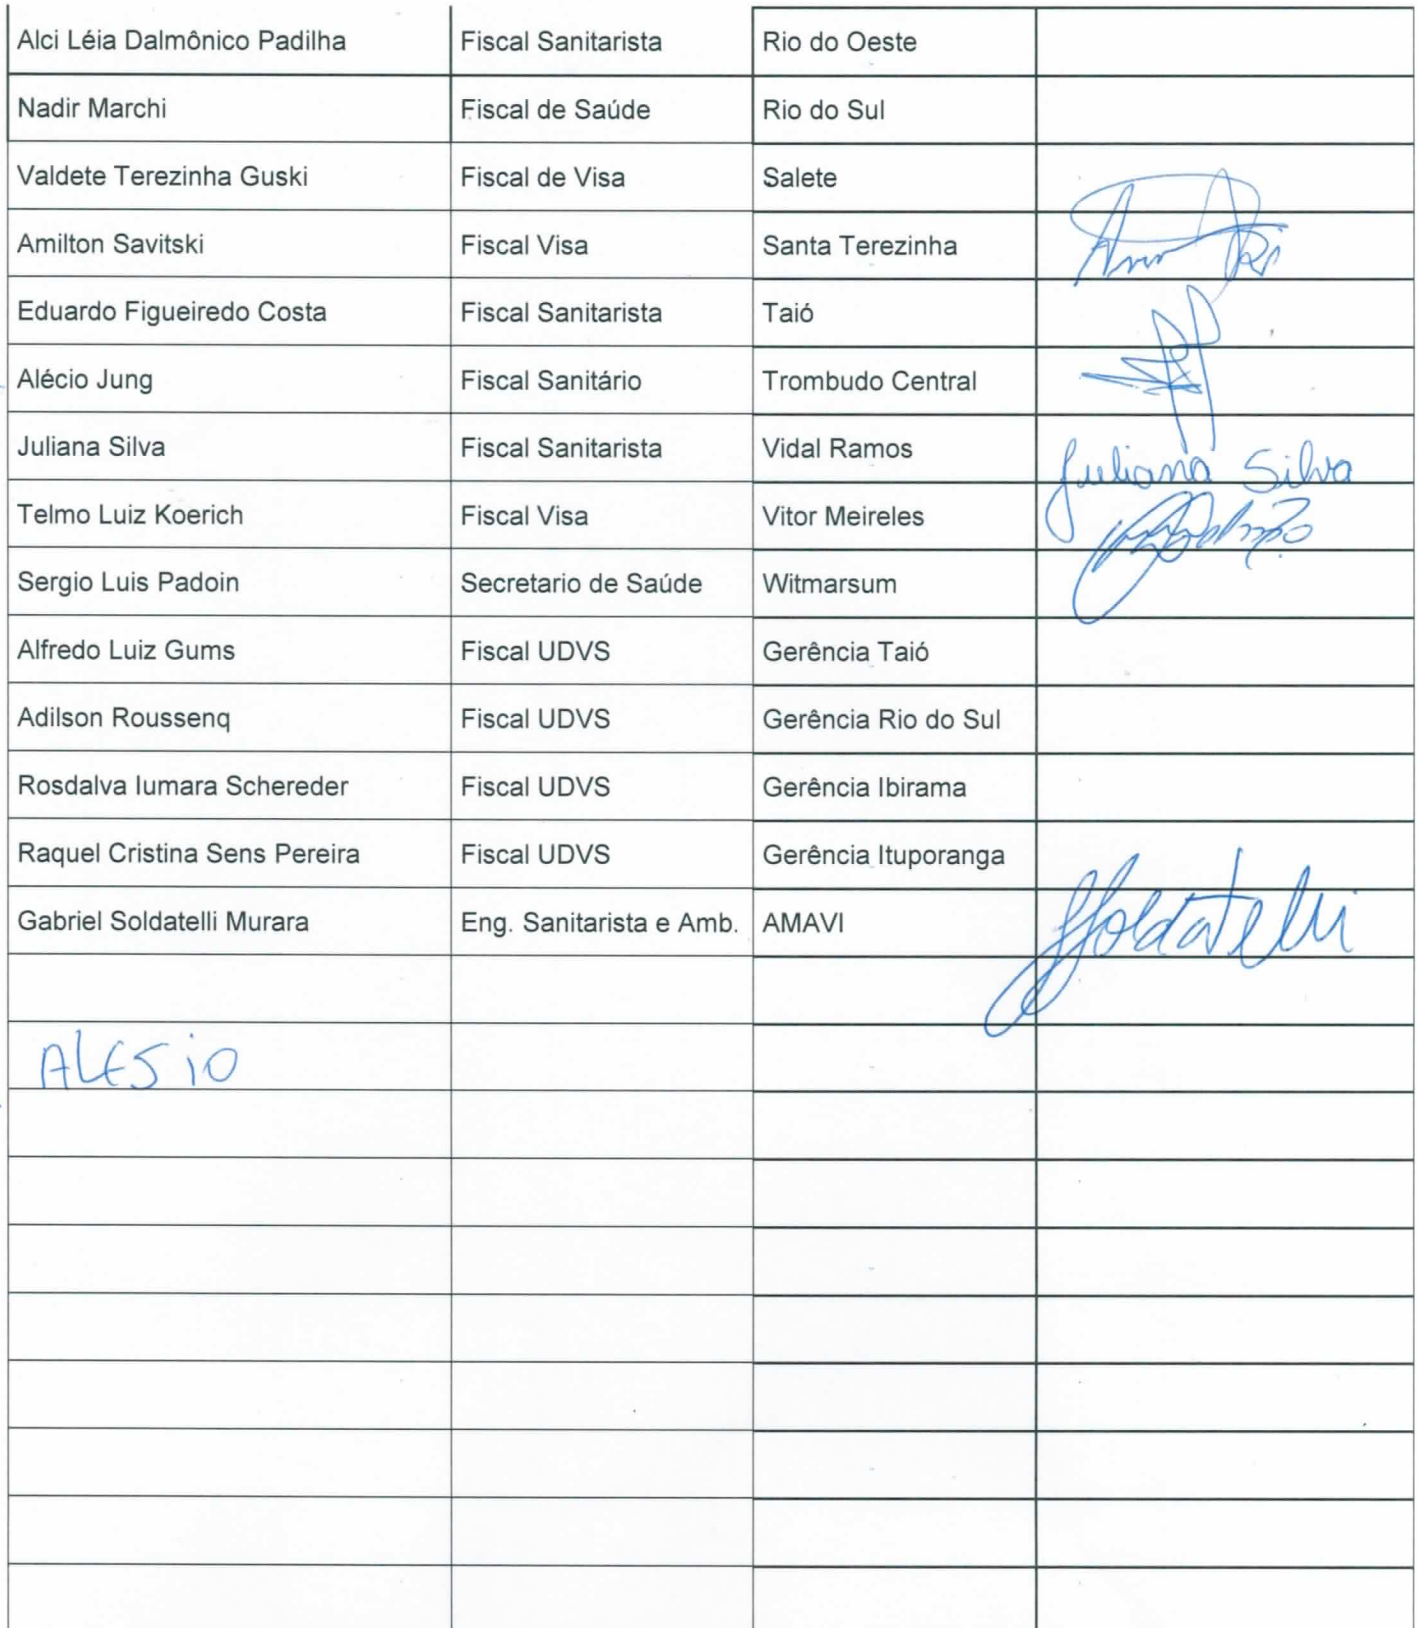 Alci Léia Dalmônico Padilha Fiscal Sanitarista Rio do Oeste
Nadir Marchi Fiscal de Saúde Rio do Sul
Valdete Terezinha Guski Fiscal de Visa Salete
Amilton Savitski Fiscal Visa Santa Terezinha
Eduardo Figueiredo Costa Fiscal Sanitarista Taió
Alécio Jung Fiscal Sanitário Trombudo Central
Juliana Silva Fiscal Sanitarista Vidal Ramos Juliana Silva
Telmo Luiz Koerich Fiscal Visa Vitor Meireles
Sergio Luis Padoin Secretario de Saúde Witmarsum
Alfredo Luiz Gums Fiscal UDVS Gerência Taió
Adilson Roussenq Fiscal UDVS Gerência Rio do Sul
Rosdalva Iumara Schereder Fiscal UDVS Gerência Ibirama
Raquel Cristina Sens Pereira Fiscal UDVS Gerência Ituporanga
Gabriel Soldatelli Murara Eng. Sanitarista e Amb. AMAVI Soldatelli
ALESiO